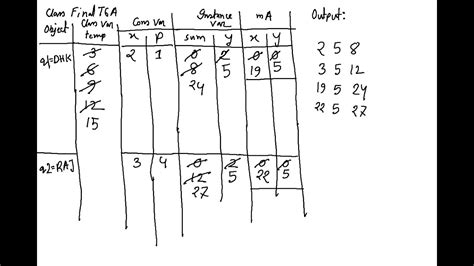 Class Final T6A
Object Class Var temp Cons Var Instance Var mA Output:
x P sum y x y
q1=DHK 3 2 1 0 2 0 0 2 5 8
6 8 5 19 5 3 5 12
9 24 19 5 24
12 22 5 27
15
q2=RAJ 3 4 0 2 0 0
12 5 22 5
27